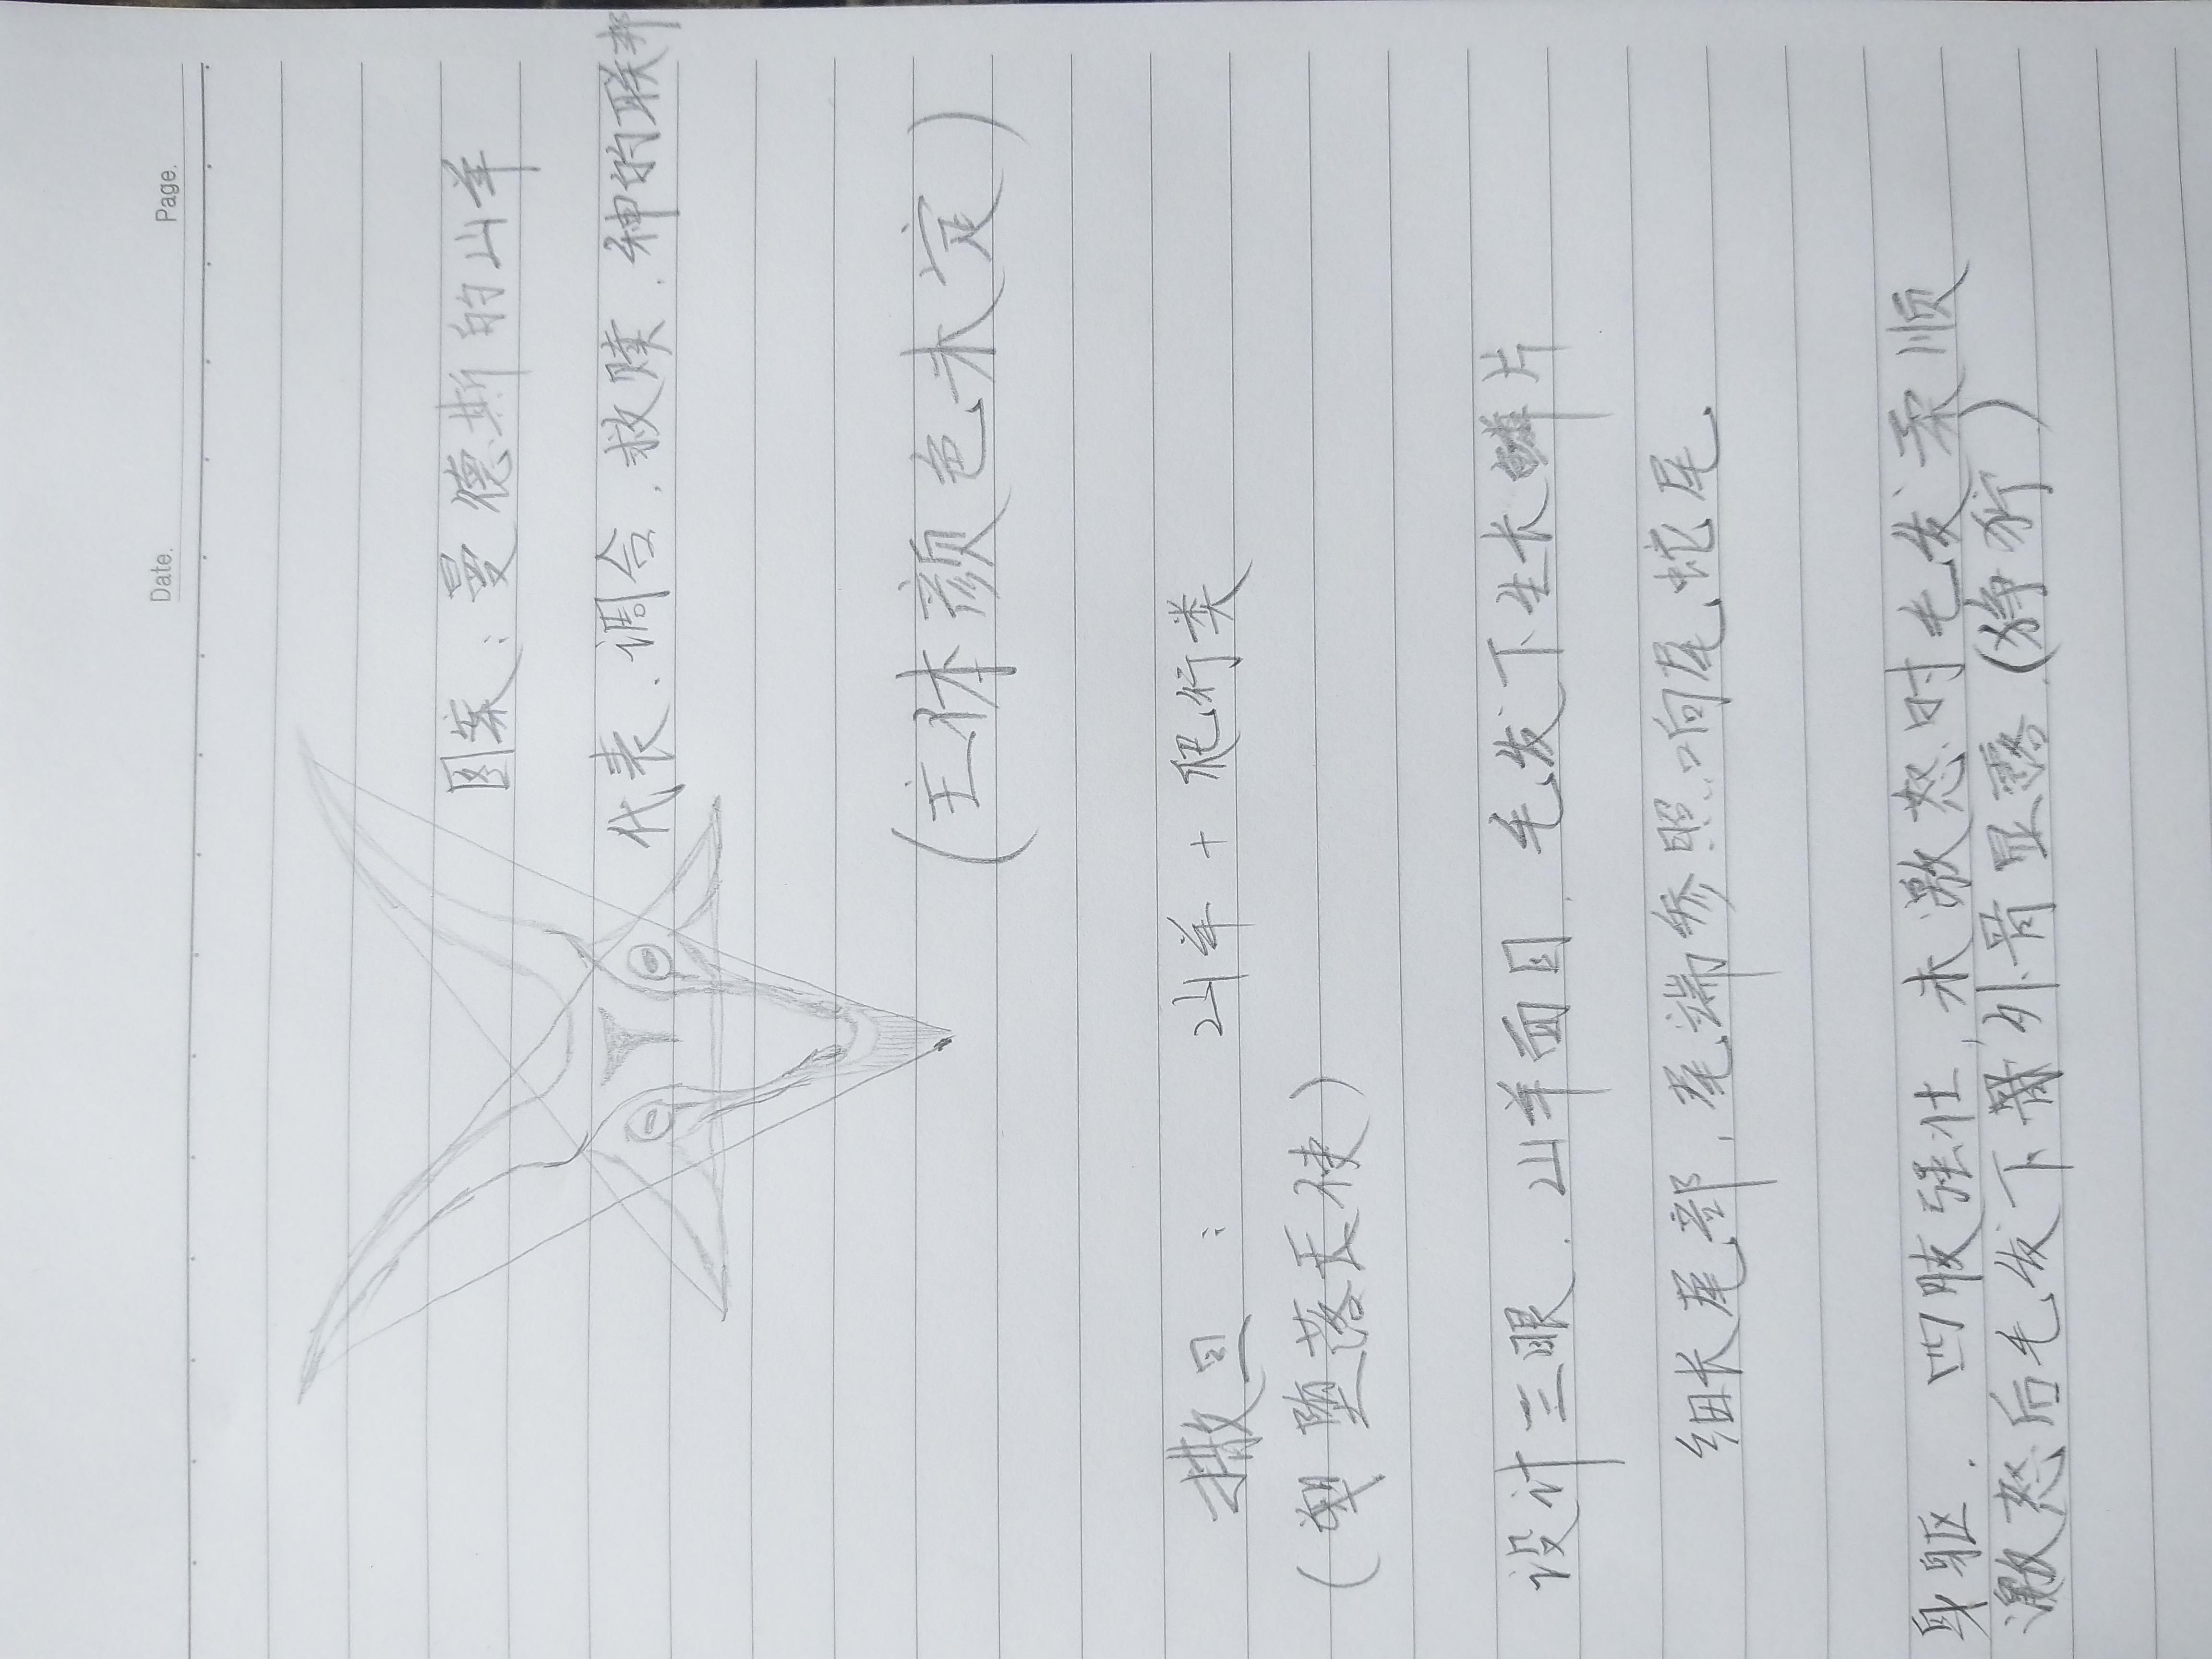 Date. Page.
图案：曼德斯的山羊
代表、调合、救赎、神的联邦
(主体颜色未定)
撒旦： 山羊 + 爬行类
(堕落天使)
设计三眼、山羊面目、毛发下生长鳞片
细长尾部，尾端参照响尾蛇尾
身躯、四肢强壮，未激怒时毛发柔顺
激怒后毛发下骨外骨显露(狰狞)